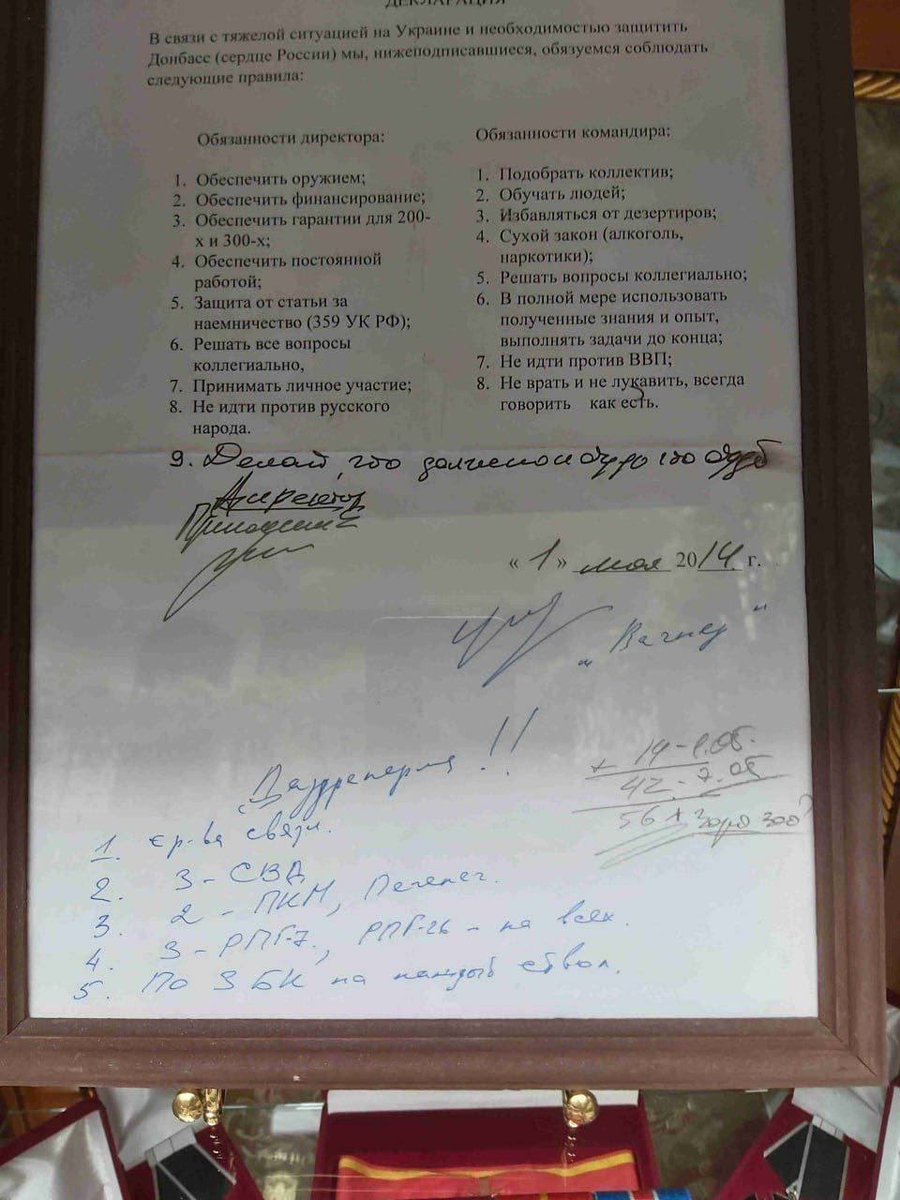 ДЕКЛАРАЦИЯ
В связи с тяжелой ситуацией на Украине и необходимостью защитить
Донбасс (сердце России) мы, нижеподписавшиеся, обязуемся соблюдать
следующие правила:
Обязанности директора:
1. Обеспечить оружием;
2. Обеспечить финансирование;
3. Обеспечить гарантии для 200-
х и 300-х;
4. Обеспечить постоянной
работой;
5. Защита от статьи за
наемничество (359 УК РФ);
6. Решать все вопросы
коллегиально,
7. Принимать личное участие;
8. Не идти против русского
народа.
Обязанности командира:
1. Подобрать коллектив;
2. Обучать людей;
3. Избавляться от дезертиров;
4. Сухой закон (алкоголь,
наркотики);
5. Решать вопросы коллегиально;
6. В полной мере использовать
полученные знания и опыт,
выполнять задачи до конца;
7. Не идти против ВВП;
8. Не врать и не лукавить, всегда
говорить как есть.
9. Делай, что должно и будь что будет
Директор
Пригожин Е
«1» мая 2014 г.
„Вагнер"
+ 14 - 1.05.
42 - 7.05
56
1. ср-ва связи.
2. 3 - СВД
3. 2 - ПКМ, Печенег.
4. 3 - РПГ-7, РПГ-26 - на всех.
5. По 3 БК на каждый ствол.